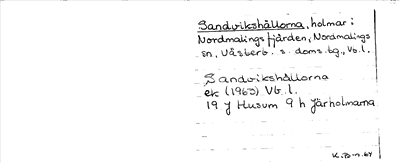 Sandvikshällorna, holmar i
Nordmalingsfjärden, Nordmalings
sn, Våsterb. s. doms.tg., Vb.l.
Sandvikshällorna
ek (1963) Vb l.
19 J Husum 9 h Järholmarna
K.